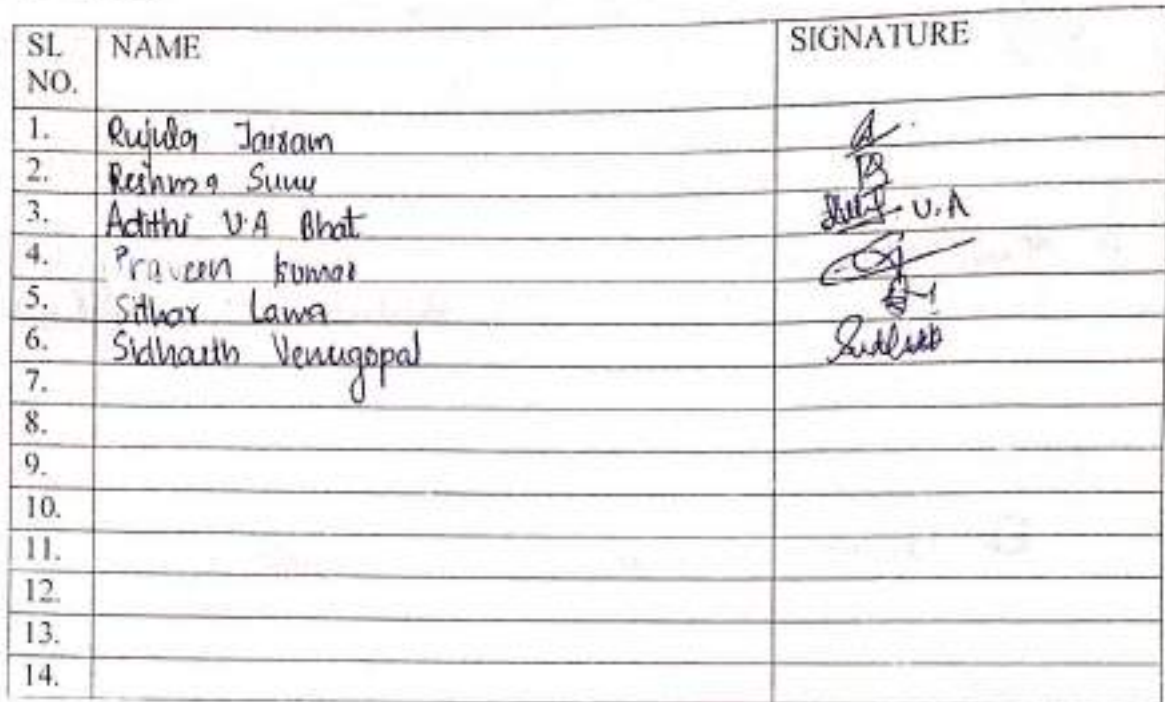 SL NO. NAME SIGNATURE
1. Rujula Jairam
2. Reshma Sunu
3. Adithi V.A Bhat U.A
4. Praveen kumar
5. Sithar Lama
6. Sidharth Venugopal
7.
8.
9.
10.
11.
12.
13.
14.